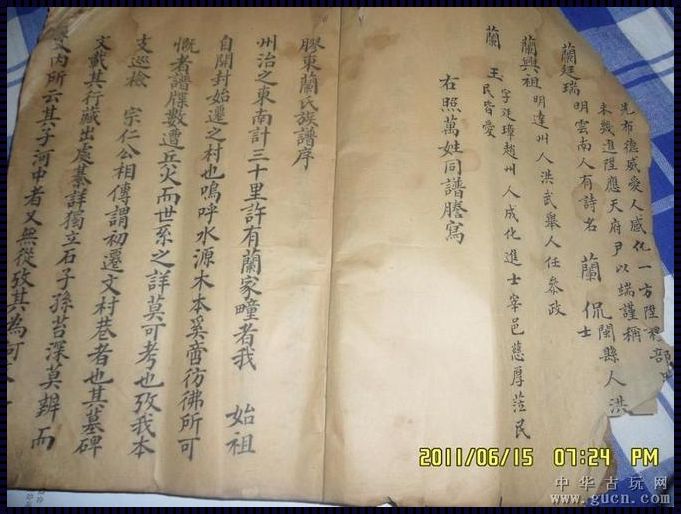 先布德威愛人感化一方陞
未幾進陞應天府尹以端謹稱
蘭廷瑞
明雲南人有詩名
蘭侃
閩縣人洪
士
蘭興祖
明達州人洪武舉人任參政
蘭玉
字廷璋趙州人成化進士宰邑慈厚蒞民
民皆愛
右照萬姓同譜謄寫
膠東蘭氏族譜序
州治之東南計三十里許有蘭家疃者我 始祖
自開封始遷之村也嗚呼水源木本奚啻彷彿所可
慨者譜牒數遭兵火而世系之詳莫可考也攷我本
支巡檢 宗仁公相傳謂初遷文村巷者也其墓碑
文載其行藏出處綦詳獨立石子孫苔深莫辨而
文內所云其子河中者又無從攷其為可
2011/06/15 07:24 PM
中华古玩网
www.gucn.com